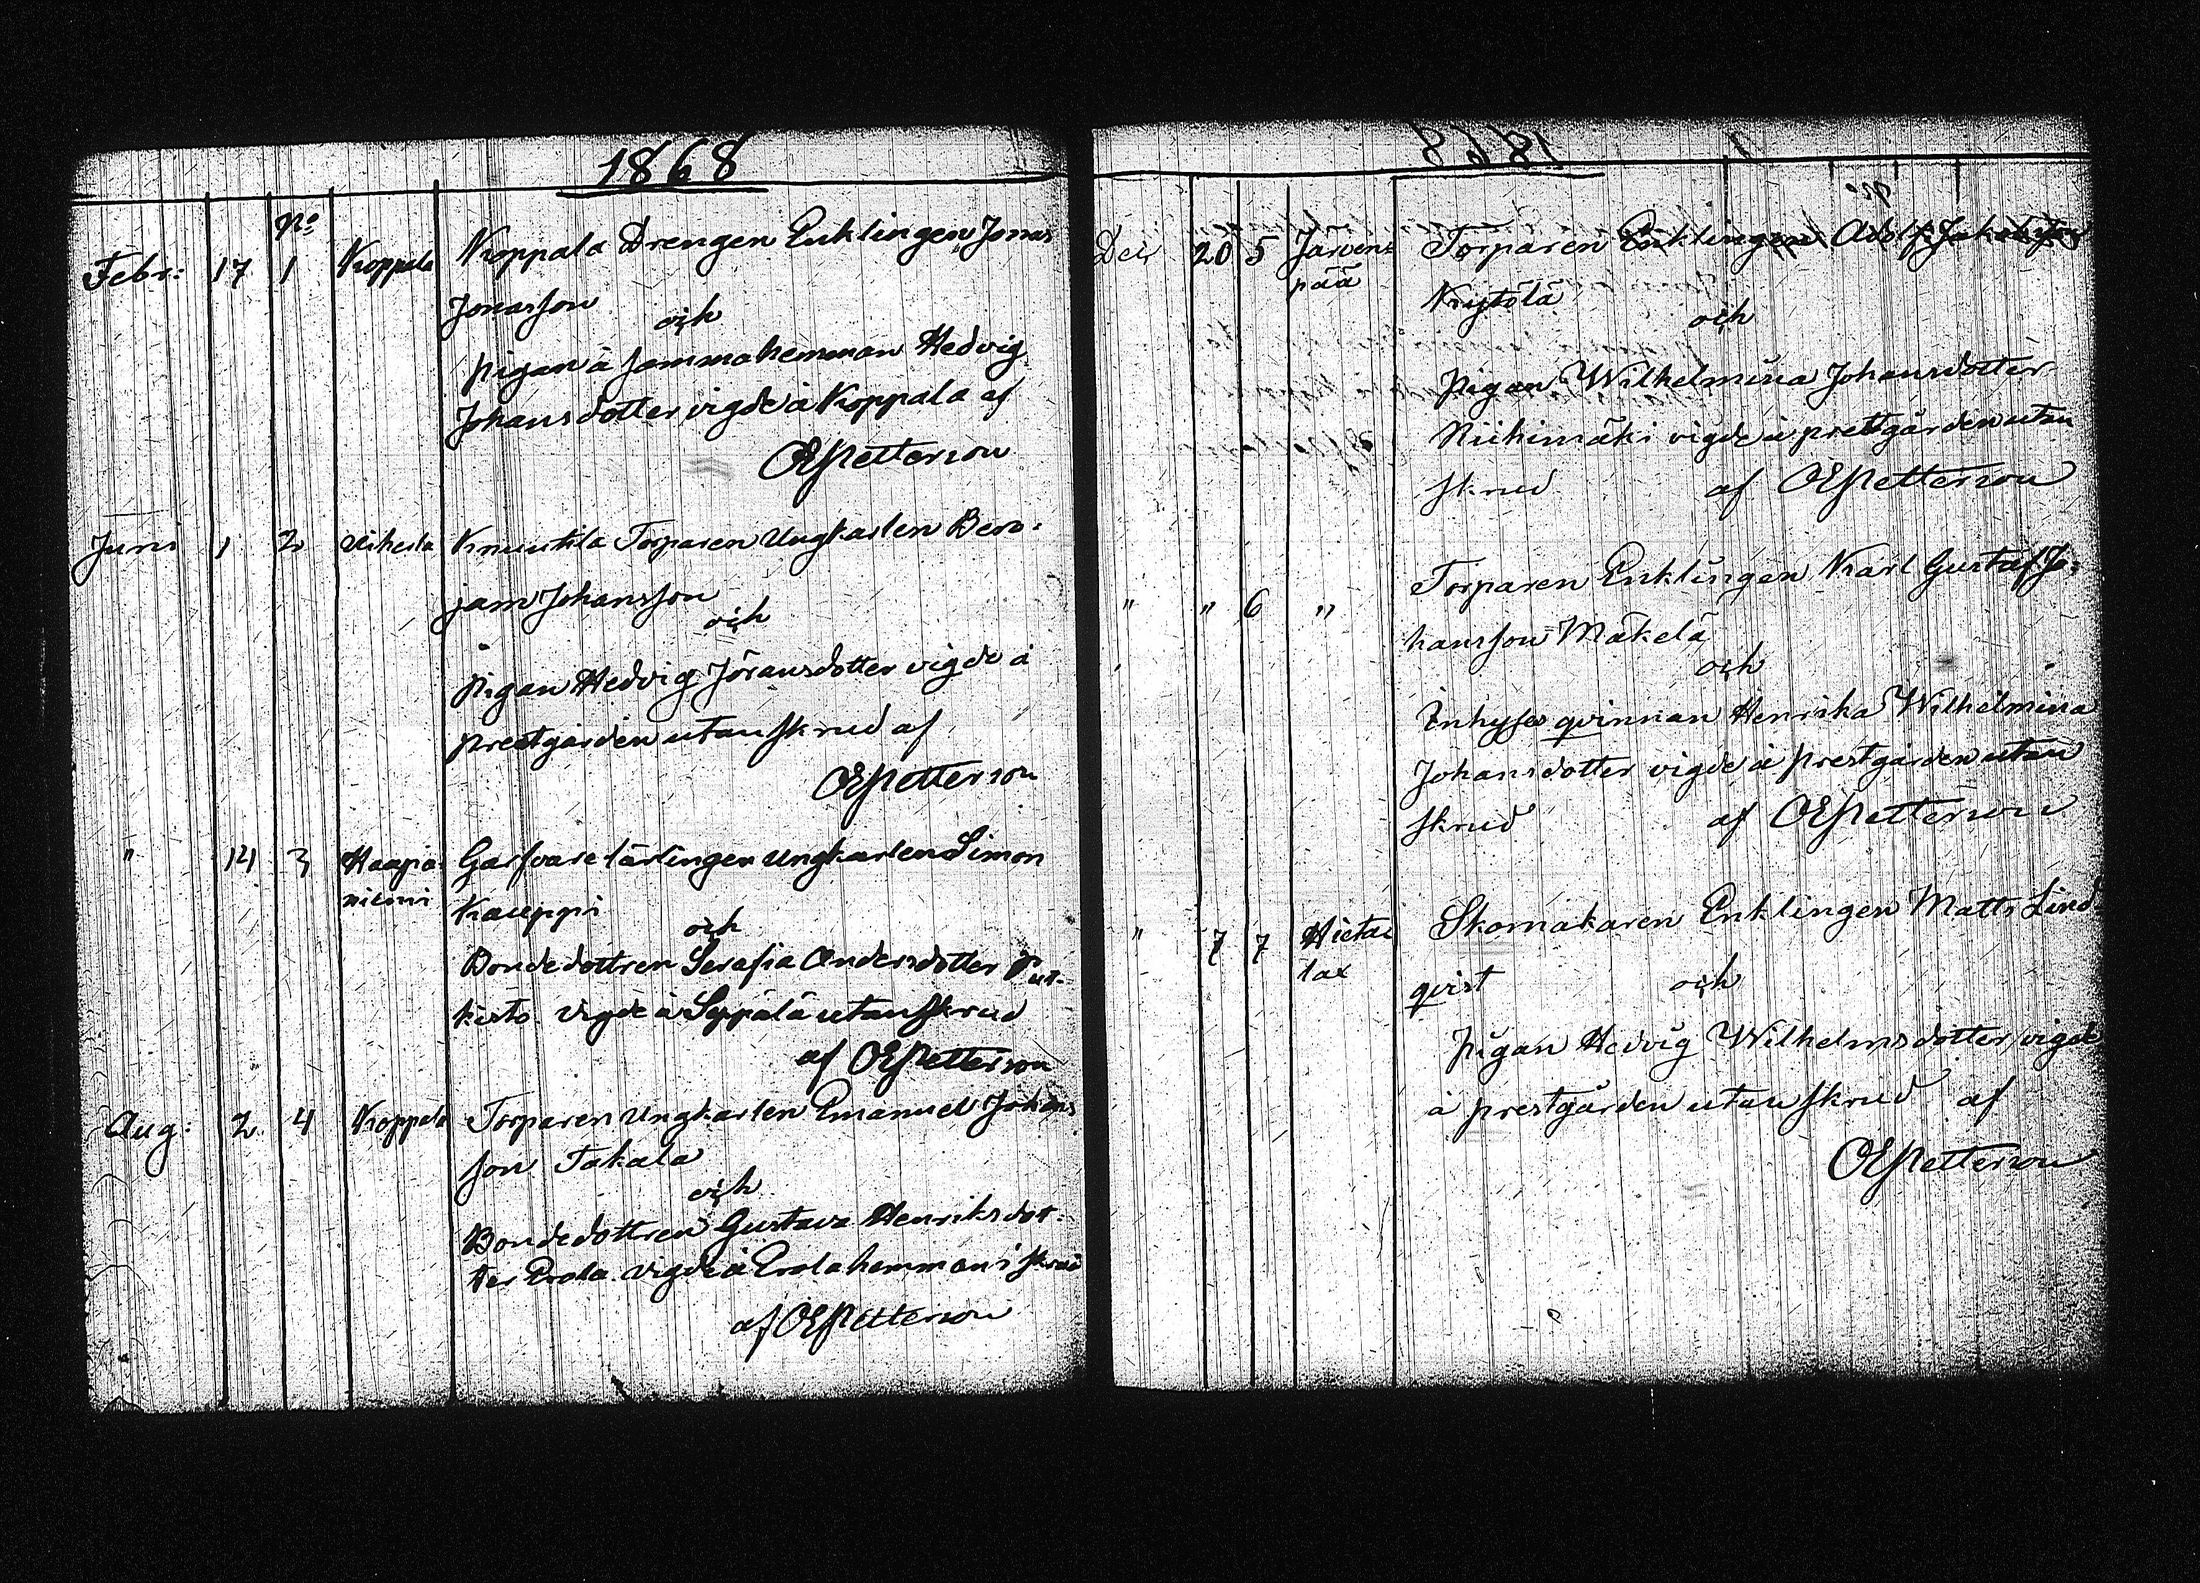 1868
No
Febr: 17 1 Koppala Koppala Drengen Enklingen Jonas
Jonasson
och
pigan å samma hemman Hedvig
Johansdotter vigde å Koppala af
OEPetterson
Juni 1 2 Knuutila Torparen Ungkarlen Bero-
jam Johansson
och
pigan Hedvig Göransdotter vigde å
prestgården utan skrud af
OEPetterson
" 14 3 Haapa- Garfvare lärlingen Ungkarlen Simon
niemi Kauppi
och
Bondedottren Serafia Andersdotter Pur-
kisto vigde å Seppälä utan skrud
af OEPetterson
Aug: 2 4 Koppala Torparen Ungkarlen Emanuel Johans
son Takala
och
Bondedottren Gustava Henriksdot-
ter Erola vigde å Erola hemman i skrud
af OEPetterson
Dec 20 5 Järven- Torparen Enklingen Adolf Jakobsson
pää Krytölä
och
pigan Wilhelmina Johansdotter
Niihimäki vigde å prestgården utan
skrud af OEPetterson
" " 6 " Torparen Enklingen Karl Gustaf Jo-
hansson Mäkelä
och
Inhyses qvinnan Henrika Wilhelmina
Johansdotter vigde å prestgården utan
skrud af OEPetterson
" 7 7 Hieta- Skomakaren Enklingen Matts Lind
lax qvist
och
pigan Hedvig Wilhelmsdotter vigde
å prestgården utan skrud af
OEPetterson